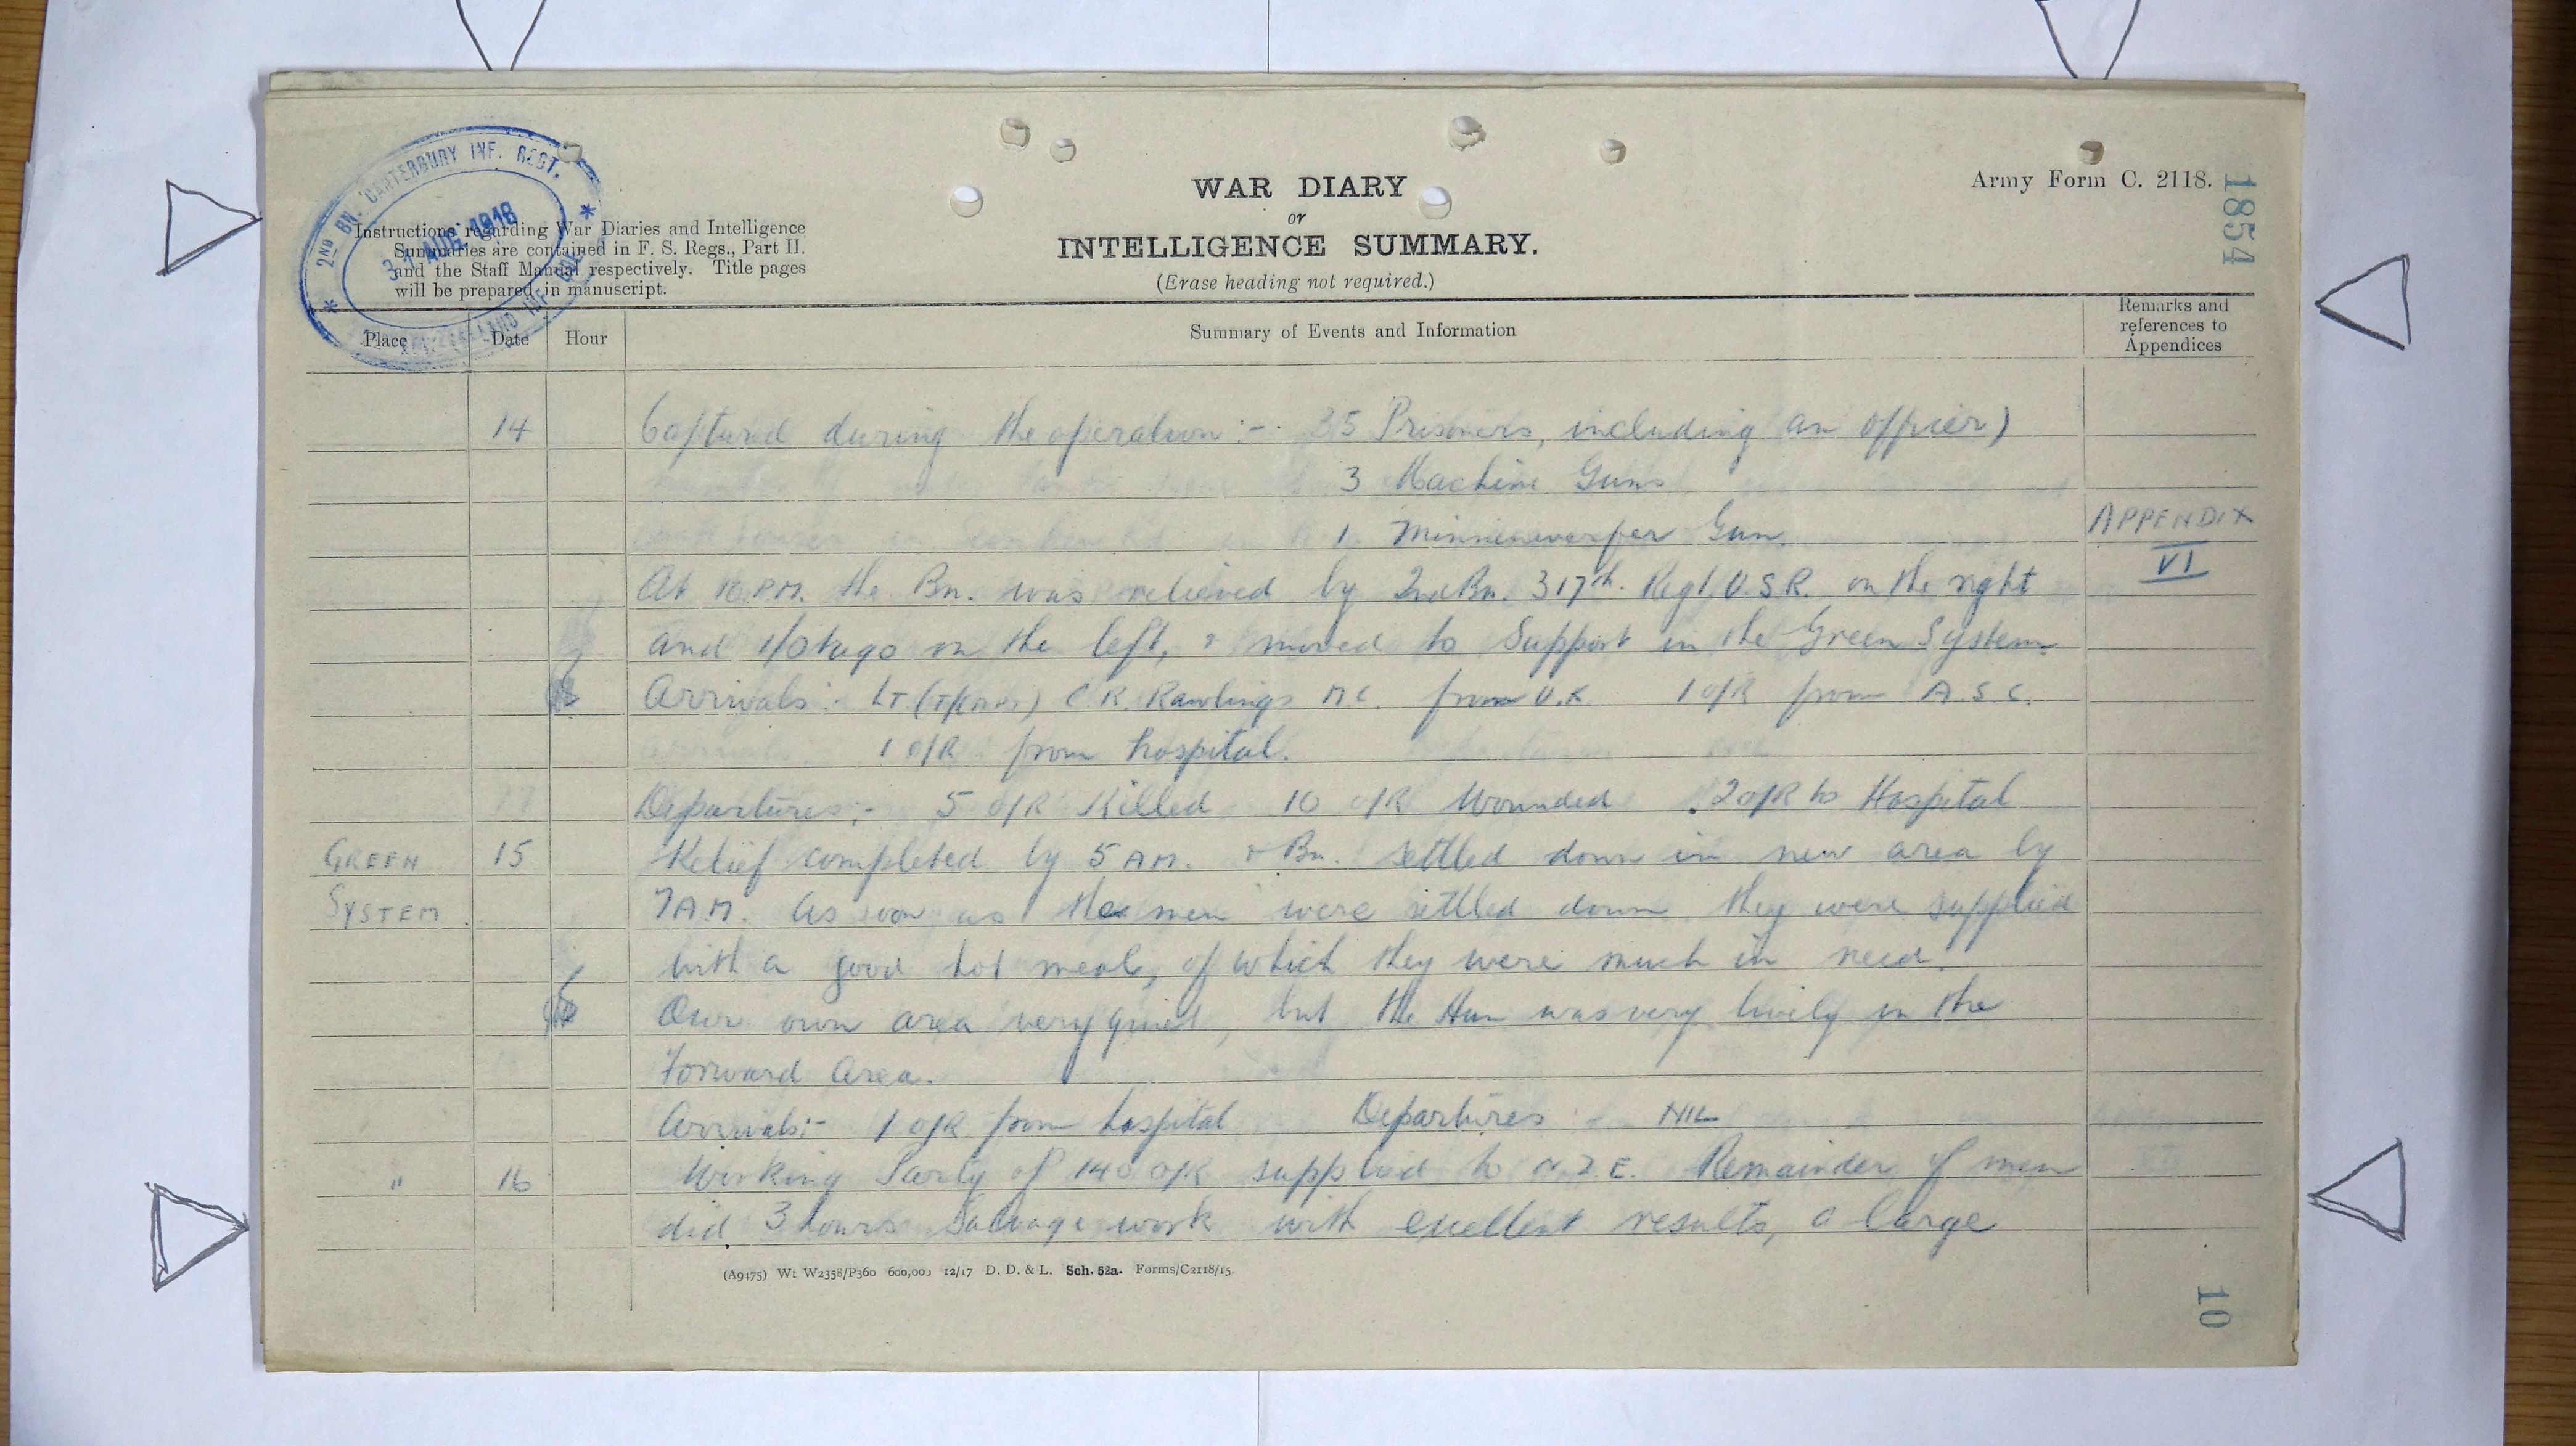 2ND BN. CANTERBURY INF. REGT.
31 AUG. 1918
Army Form C. 2118.
1854
WAR DIARY
or
INTELLIGENCE SUMMARY.
(Erase heading not required.)
Instructions regarding War Diaries and Intelligence
Summaries are contained in F. S. Regs., Part II.
and the Staff Manual respectively. Title pages
will be prepared in manuscript.
Place Date Hour Summary of Events and Information Remarks and
references to
Appendices
14 Captured during the operation :- 35 Prisoners, including an officer)
3 Machine Guns
1 Minnenwerfer Gun. APPENDIX
VI
At 10 P.M. the Bn. was relieved by 2nd Bn. 317th. Regt U.S.R. on the right
and 1/Otago on the left, & moved to Support in the Green System
Arrivals :- LT (T/Capt) C.R. Rawlings M.C. from U.K. 1 O/R from A.S.C.
1 O/R from hospital.
Departures :- 5 O/R Killed 10 O/R Wounded 2 O/R to Hospital
GREEN 15 Relief completed by 5 AM. & Bn. settled down in new area by
SYSTEM 7 A.M. As soon as the men were settled down they were supplied
with a good hot meal, of which they were much in need.
Our own area very quiet, but the Hun was very lively in the
Forward Area.
Arrivals :- 1 O/R from hospital Departures :- NIL
" 16 Working Party of 140 O/R supplied to N.Z.E. Remainder of men
did 3 hours Salvage work with excellent results, a large
(A9475) Wt W2358/P360 600,000 12/17 D. D. & L. Sch. 52a. Forms/C2118/15.
10